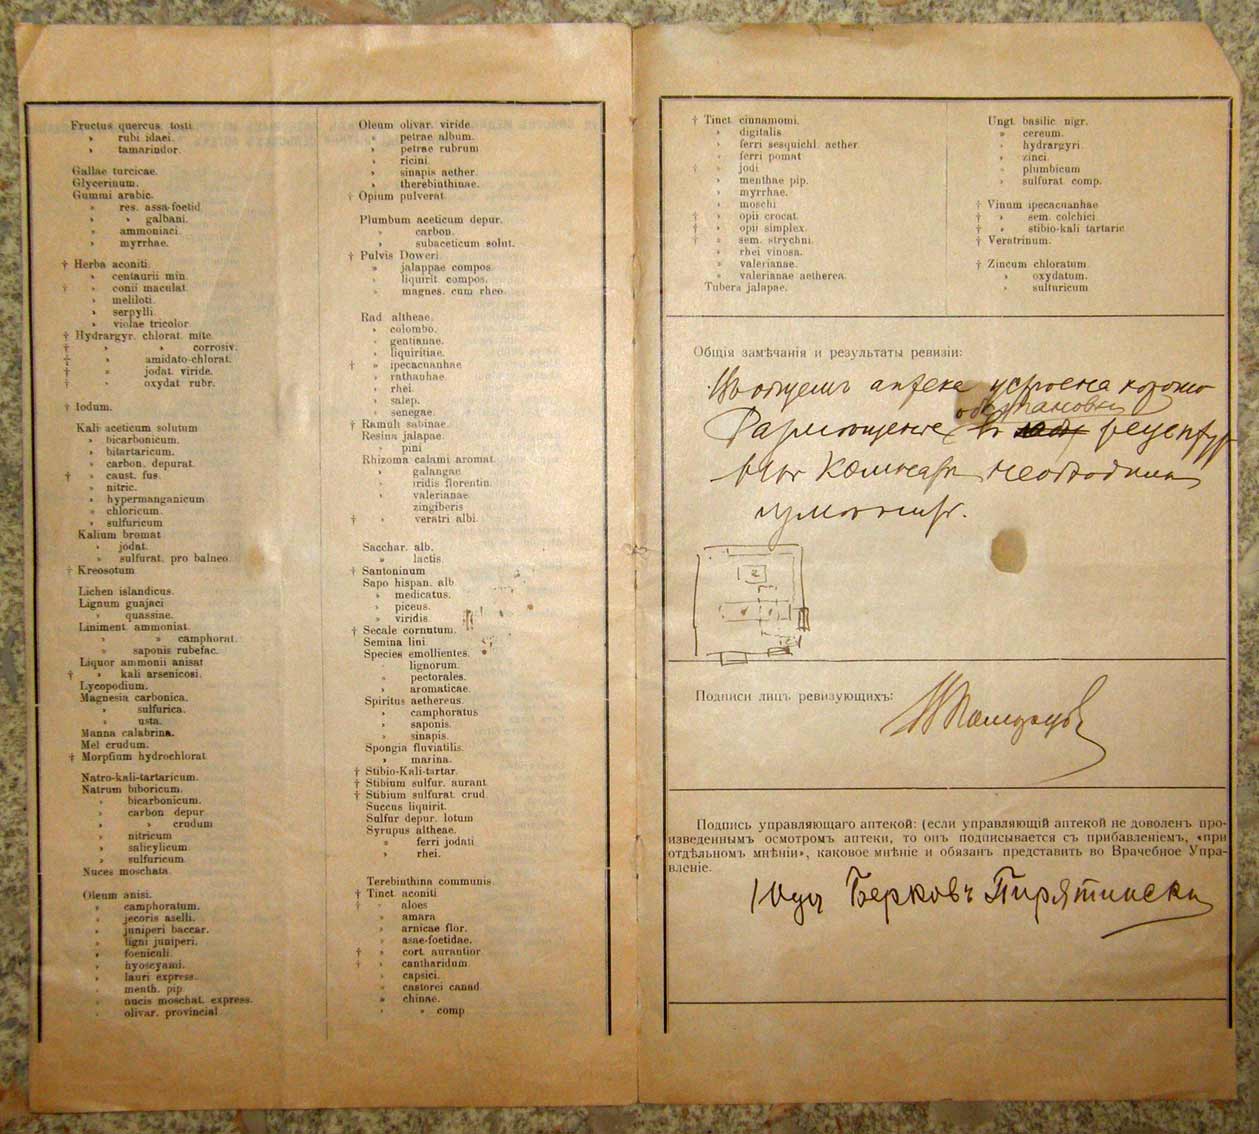 Fructus quercus tosti
» rubi idaei.
» tamarindor.
Gallae turcicae.
Glycerinum.
Gummi arabic.
» res. assa-foetid
» » galbani.
» ammoniaci.
» myrrhae.
† Herba aconiti.
» centaurii min.
† » conii maculat.
» meliloti.
» serpylli.
» violae tricolor
† Hydrargyr. chlorat. mite.
† » » corrosiv.
† » amidato-chlorat.
† » jodat. viride.
† » oxydat rubr.
† Iodum.
Kali aceticum solutum
» bicarbonicum.
» bitartaricum.
» carbon. depurat.
† » caust. fus.
» nitric.
» hypermanganicum
» chloricum.
» sulfuricum
Kalium bromat
» jodat.
» sulfurat. pro balneo.
† Kreosotum
Lichen islandicus.
Lignum guajaci
» quassiae.
Liniment. ammoniat.
» » camphorat.
» saponis rubefac.
Liquor ammonii anisat
† » kali arsenicosi.
Lycopodium.
Magnesia carbonica.
» sulfurica.
» usta.
Manna calabrina.
Mel crudum.
† Morpfium hydrochlorat.
Natro-kali-tartaricum.
Natrum biboricum.
» bicarbonicum.
» carbon depur
» » crudum
» nitricum
» salicylicum
» sulfuricum
Nuces moschata.
Oleum anisi.
» camphoratum.
» jecoris aselli.
» juniperi baccar.
» ligni juniperi.
» foeniculi.
» hyoscyami.
» lauri express.
» menth. pip
» nucis moschat. express.
» olivar. provincial
Oleum olivar. viride.
» petrae album.
» petrae rubrum
» ricini.
» sinapis aether.
» therebinthinae.
† Opium pulverat.
Plumbum aceticum depur.
» carbon.
» subaceticum solut.
† Pulvis Doweri.
» jalappae compos.
» liquirit. compos.
» magnes. cum rheo.
Rad altheae.
» colombo.
» gentianae.
» liquiritiae.
† » ipecacuanhae
» rathanhae.
» rhei.
» salep.
» senegae.
† Ramuli sabinae.
Resina jalapae.
» pini
Rhizoma calami aromat.
» galangae
» iridis florentin.
» valerianae
» zingiberis
† » veratri albi.
Sacchar. alb.
» lactis.
† Santoninum
Sapo hispan. alb.
» medicatus.
» piceus.
» viridis.
† Secale cornutum.
Semina lini.
Species emollientes.
» lignorum.
» pectorales.
» aromaticae.
Spiritus aethereus.
» camphoratus
» saponis.
» sinapis.
Spongia fluviatilis.
» marina.
† Stibio-Kali-tartar.
† Stibium sulfur. aurant.
† Stibium sulfurat. crud.
Succus liquirit.
Sulfur depur. lotum
Syrupus altheae.
» ferri jodati
» rhei.
Terebinthina communis.
† Tinct. aconiti
† » aloes
» amara
» arnicae flor.
» asae-foetidae.
† » cort. aurantior
† » cantharidum
» capsici.
» castorei canad
» chinae.
» » comp
† Tinct. cinnamomi.
» digitalis
» ferri sesquichl. aether.
» ferri pomat
† » jodi
» menthae pip.
» myrrhae.
» moschi
† » opii crocat.
† » opii simplex.
† » sem. strychni.
» rhei vinosa.
» valerianae.
» valerianae aetherea.
Tubera jalapae.
Ungt. basilic. nigr.
» cereum.
» hydrargyri.
» zinci.
» plumbicum
» sulfurat. comp.
† Vinum ipecacuanhae
† » sem. colchici.
† » stibio-kali tartaric
† Veratrinum.
† Zincum chloratum.
» oxydatum.
» sulfuricum
Общія замѣчанія и результаты ревизіи:
Въ общемъ аптека устроена хорошо
обстановки
Размѣщеніе въ рецептур
ной комнатѣ необходимо
измѣнить.
2
Подписи лицъ ревизующихъ:
Подпись управляющаго аптекой: (если управляющій аптекой не доволенъ про-
изведеннымъ осмотромъ аптеки, то онъ подписывается съ прибавленіемъ, «при
отдѣльномъ мнѣніи», каковое мнѣніе и обязанъ представить во Врачебное Упра-
вленіе.
Берковъ Пирятинскій